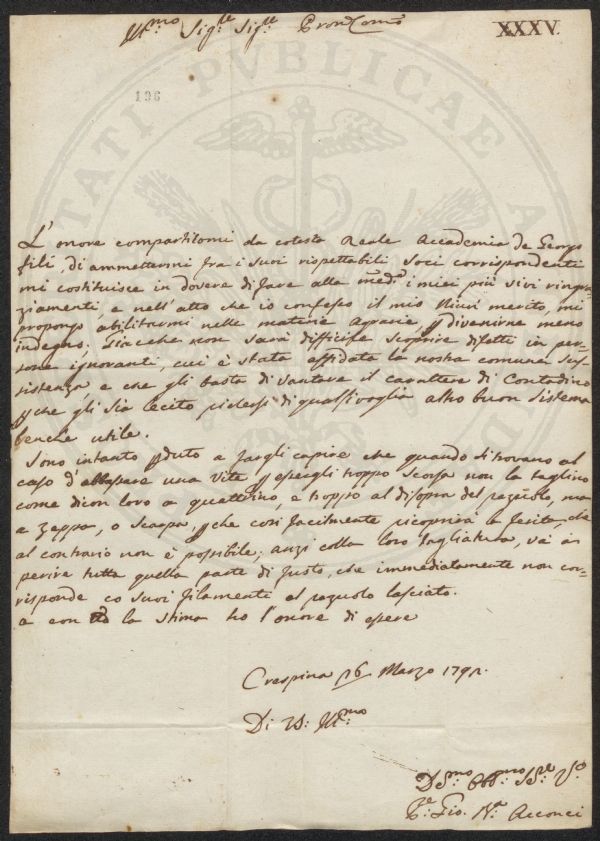 XXXV.
Ill.mo Sig.re Sig.re Pron Col.mo
196
L'onore compartitomi da cotesta Reale Accademia de Georgo
fili, di ammettermi fra i suoi rispettabili Soci corrispondenti
mi costituisce in dovere di fare alla med.a i miei più vivi ringra=
ziamenti, e nell'atto che io confesso il mio niun merito, mi
propongo abilitarmi nelle materie Agrarie p divenirne meno
indegno; Giacche non sarà difficile scoprire difetti in per=
sone ignoranti, cui è stata affidata la nostra comune sus=
sistenza e che gli basta di vantare il carattere di Contadino
p che gli sia lecito ridersi di qualsivoglia altro buon sistema
benche utile.
Sono intanto dietro a fargli capire che quando si trovano al
caso d'abbassare una Vite p essergli troppo scorsa non la taglino
come dicon loro a quattrino, e troppo al disopra del razuolo, ma
a Zeppa, o scarpa, p che così facilmente ricoprirà la ferita, che
al contrario non è possibile; anzi colla loro tagliatura, và a
perire tutta quella parte di fusto, che immediatamente non cor=
risponde co suoi filamenti al razuolo lasciato.
e con tta la stima ho l'onore di essere
Crespina 16 Marzo 1791.
Di VS: Ill.mo
D.mo Obb.mo Se.re V.o
P.e Gio. B.a Acconci
TATI PVBLICAE A